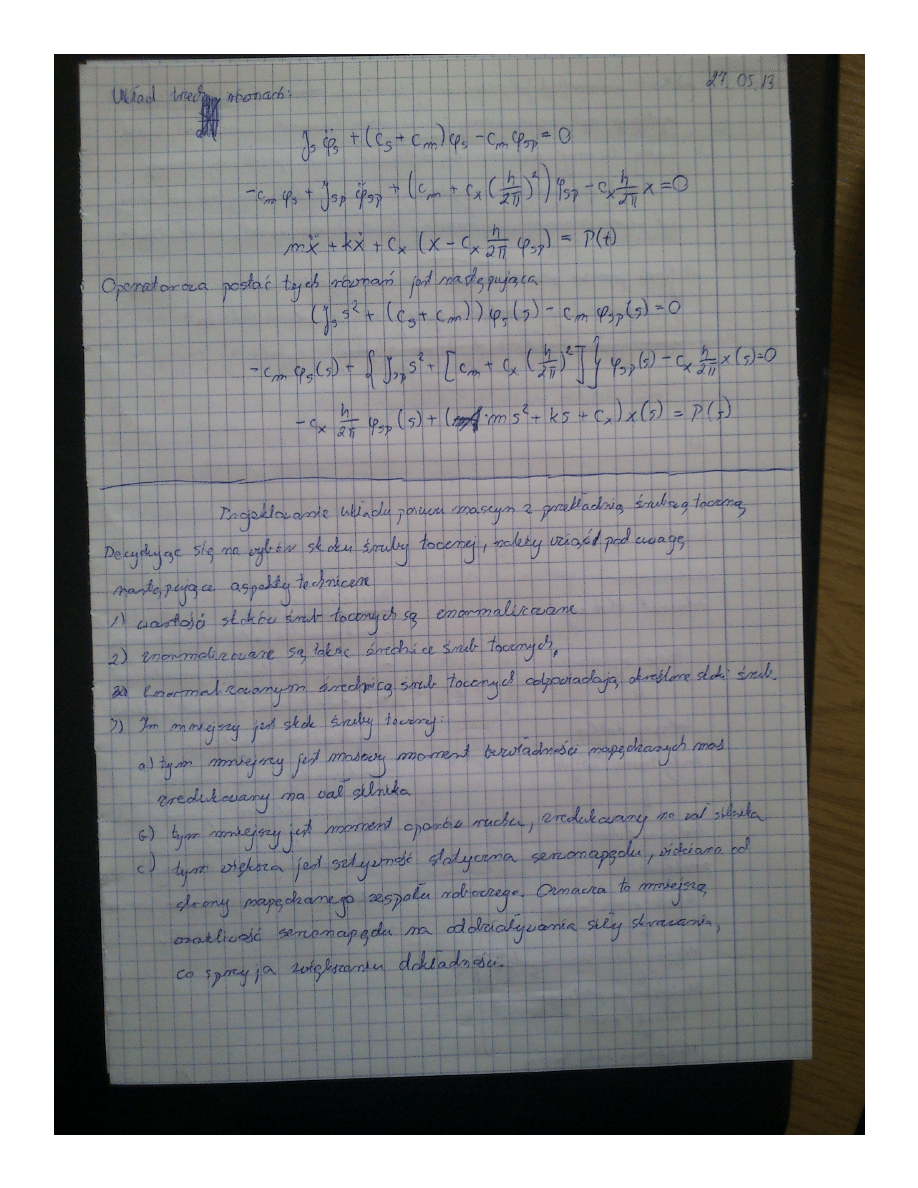 27.05.13
Układ trzech równań:
J_s φ̈_s + (c_s + c_m) φ_s - c_m φ_sp = 0
-c_m φ_s + J_sp φ̈_sp + (c_m + c_x (h/2π)²) φ_sp - c_x h/2π x = 0
mẍ + kẋ + c_x (x - c_x h/2π φ_sp) = P(t)
Operatorowa postać tych równań jest następująca
(J_s s² + (c_s + c_m)) φ_s(s) - c_m φ_sp(s) = 0
-c_m φ_s(s) + { J_sp s² + [c_m + c_x (h/2π)²]} φ_sp(s) - c_x h/2π x(s) = 0
-c_x h/2π φ_sp(s) + (ms² + ks + c_x) x(s) = P(s)
Projektowanie układu posuwu maszyn z przekładnią śrubową toczną
Decydując się na wybór skoku śruby tocznej, należy wziąść pod uwagę
następujące aspekty techniczne
1) wartości skoków śrub tocznych są znormalizowane
2) znormalizowane są także średnice śrub tocznych,
znormalizowanym średnicą śrub tocznych odpowiadają określone skoki śrub.
3) Im mniejszy jest skok śruby tocznej:
a) tym mniejszy jest masowy moment bezwładności napędzanych mas
zredukowany na wał silnika
b) tym mniejszy jest moment oporów ruchu, zredukowany na wał silnika
c) tym większa jest sztywność statyczna serwonapędu, widziana od
strony napędzanego zespołu roboczego. Oznacza to mniejszą
wrażliwość serwonapędu na oddziaływania siły skrawania,
co sprzyja zwiększaniu dokładności.